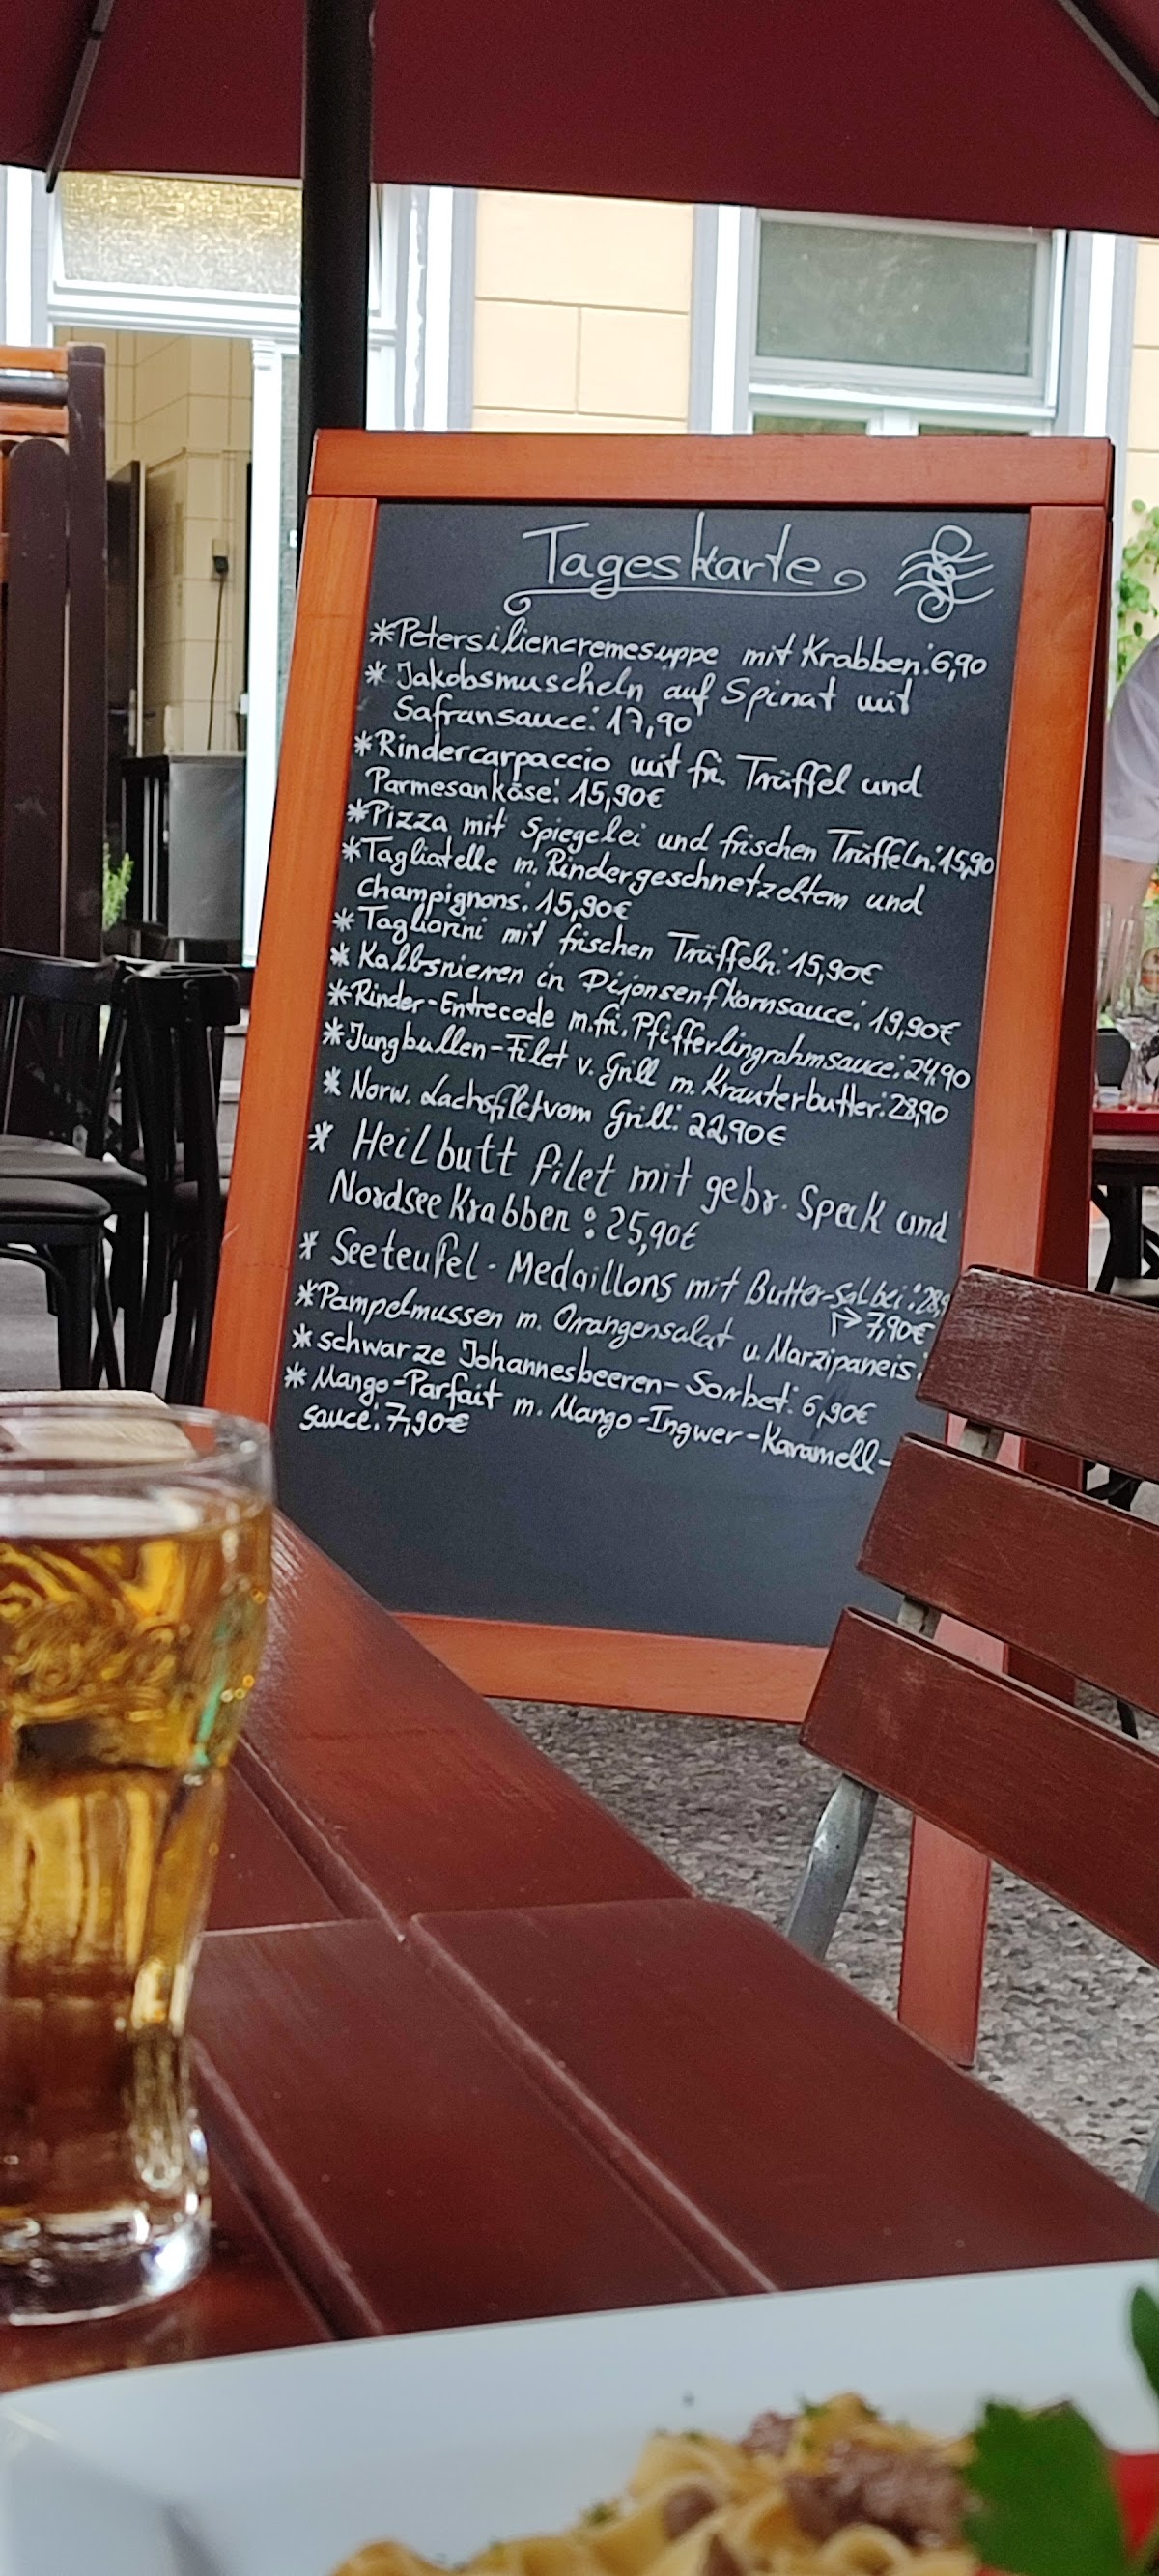 Tageskarte
*Petersiliencremesuppe mit Krabben: 6,90
* Jakobsmuscheln auf Spinat mit
Safransauce: 17,90
*Rindercarpaccio mit fri. Trüffel und
Parmesankäse: 15,90€
*Pizza mit Spiegelei und frischen Trüffeln: 15,90
*Tagliatelle m. Rindergeschnetzeltem und
Champignons: 15,90€
* Tagliorini mit frischen Trüffeln: 15,90€
* Kalbsnieren in Dijonsenfkornsauce: 19,90€
*Rinder-Entrecode m. fri. Pfifferlingrahmsauce: 24,90
*Jungbullen-Filet v. Grill m. Krauterbutter: 28,90
* Norw. Lachsfilet vom Grill: 22,90€
* Heilbutt filet mit gebr. Speck und
Nordsee Krabben : 25,90€
* Seeteufel - Medaillons mit Butter-Salbei: 28,9
7,90€
*Pampelmussen m. Orangensalat u. Marzipaneis:
* schwarze Johannesbeeren-Sorbet: 6,90€
* Mango-Parfait m. Mango-Ingwer-Karamell-
sauce: 7,90€